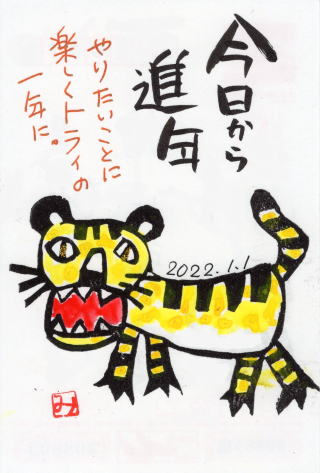 今日から
進年
やりたいことに
楽しくトライの
一年に。
2022.1.1
み